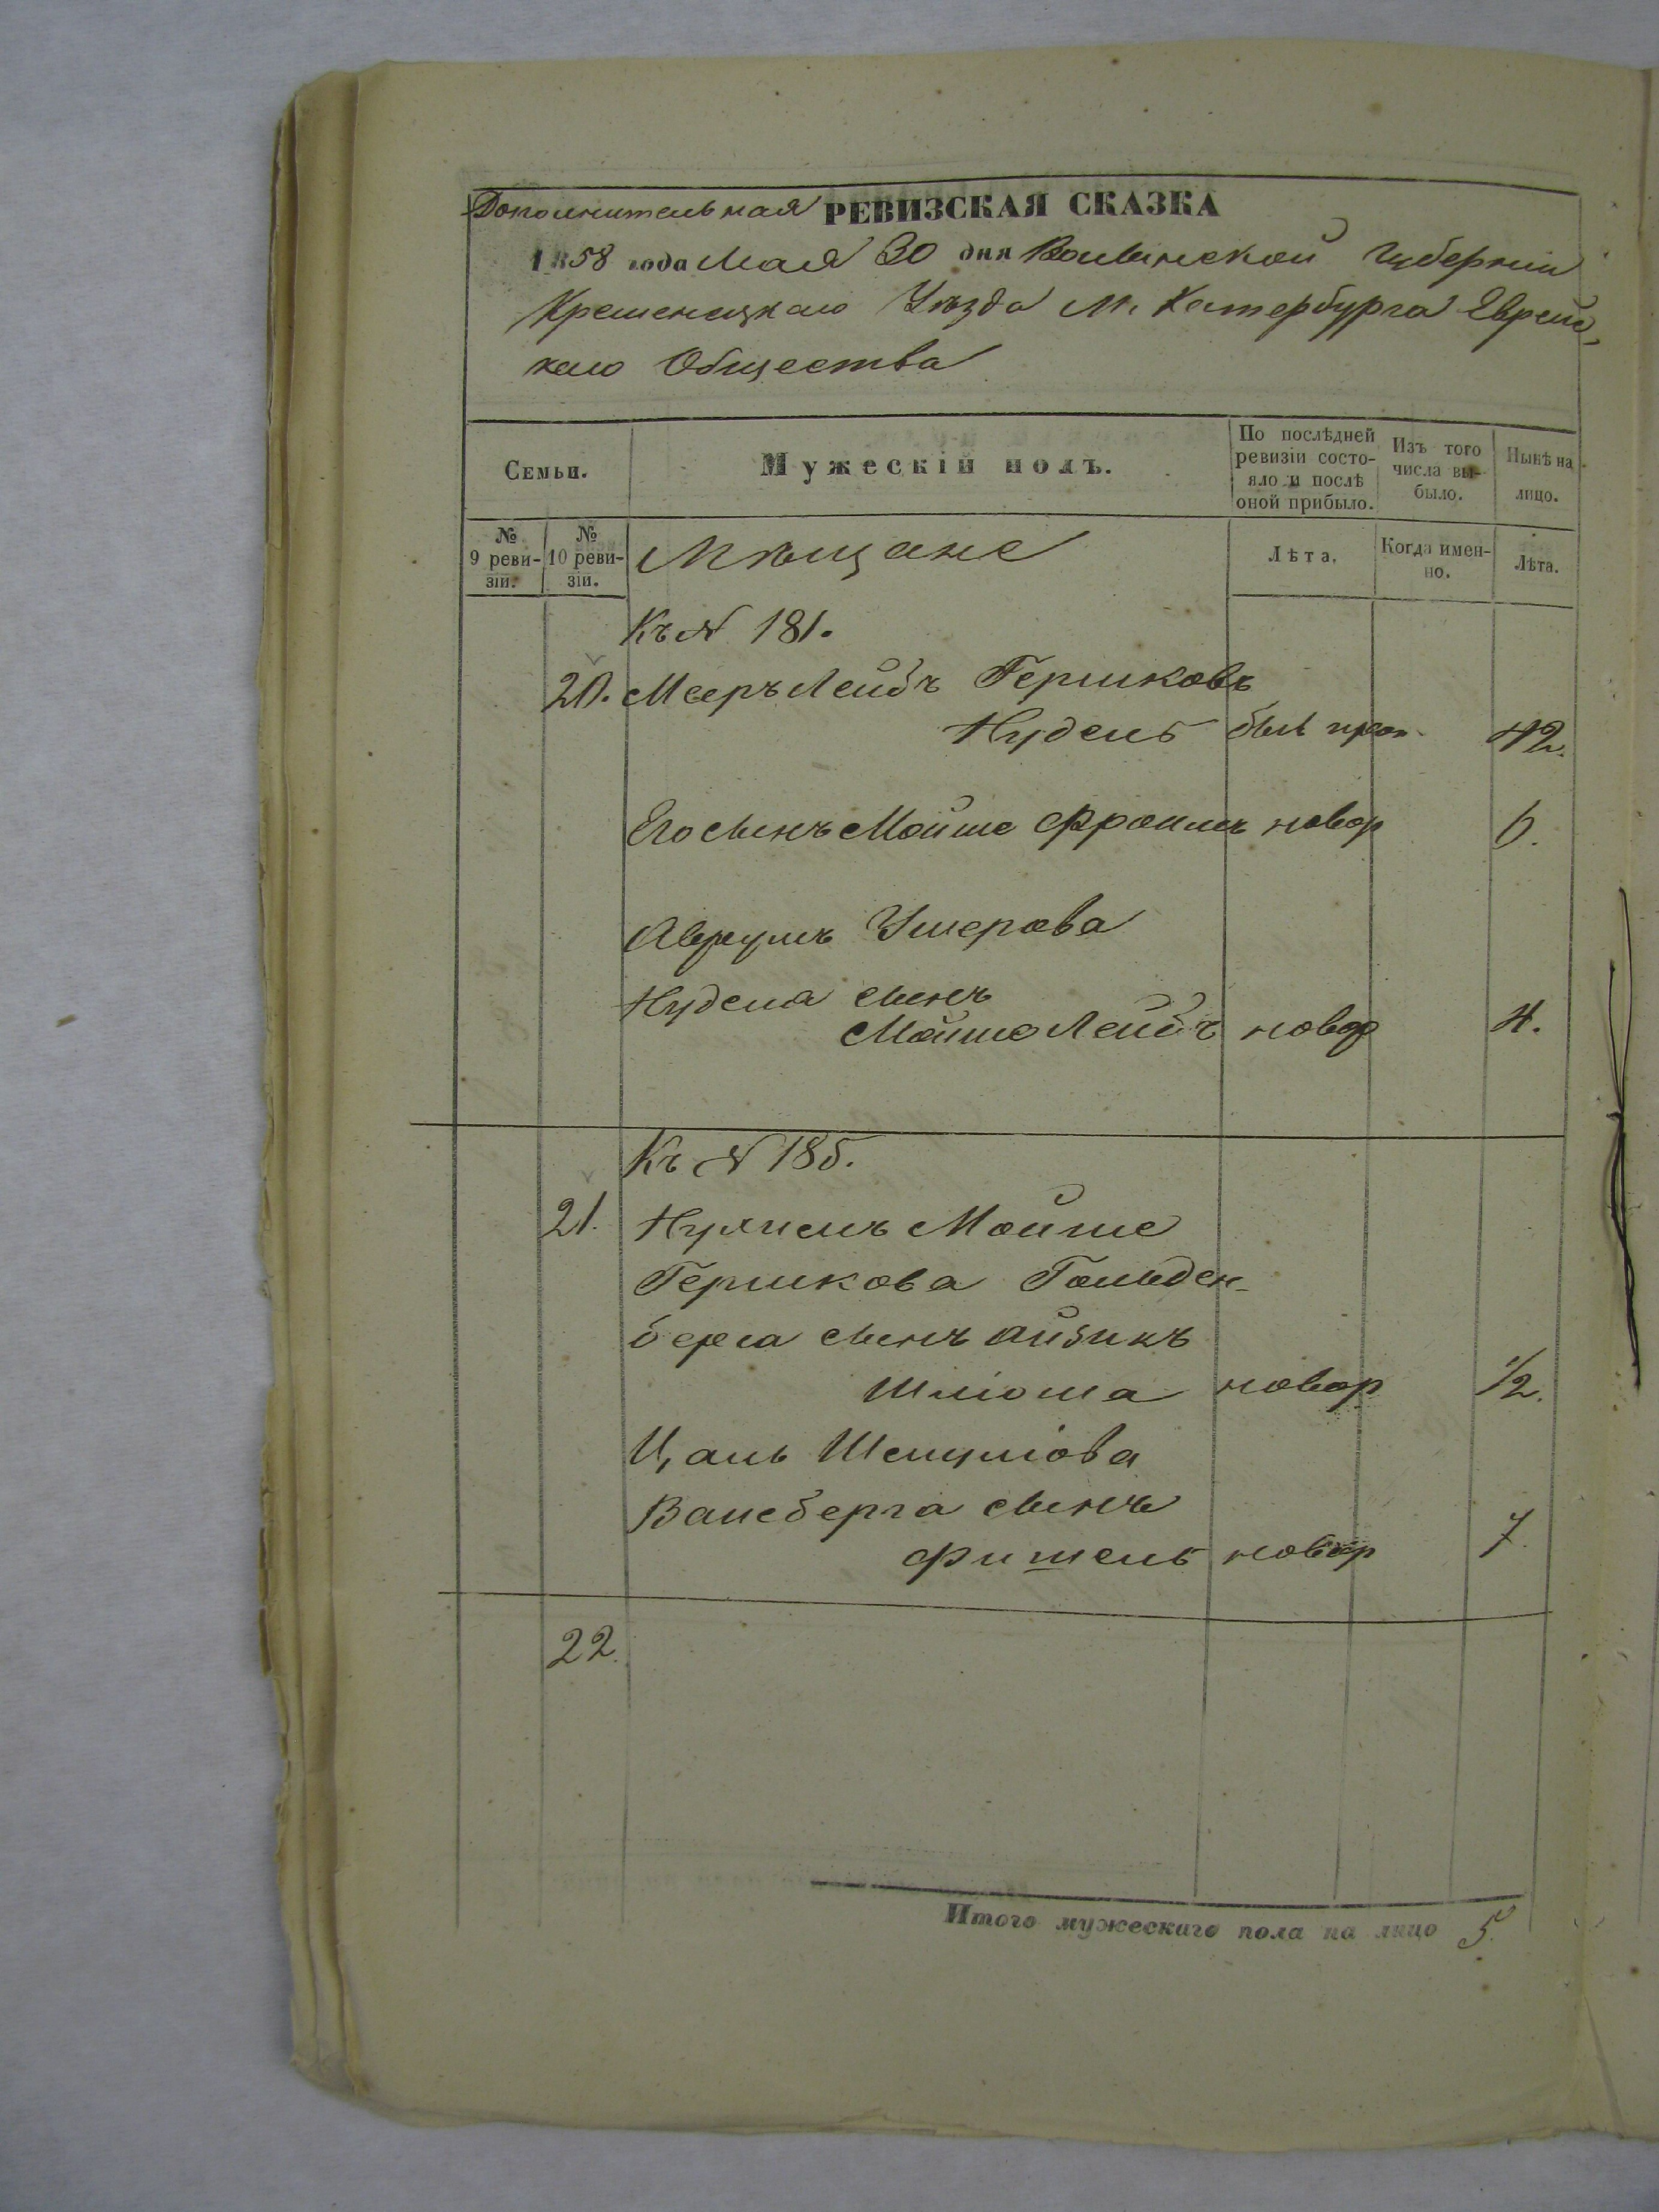 Дополнительная РЕВИЗСКАЯ СКАЗКА
1858 года Мая 30 дня Волынской Губерніи
Кременецкаго Уѣзда М. Катербурга Еврейс-
каго Общества
Семьи.
Мужескій полъ.
По послѣдней ревизіи состояло и послѣ оной прибыло.
Изъ того числа выбыло.
Нынѣ на лицо.
№ 9 ревизіи.
№ 10 ревизіи.
Мѣщане
Лѣта.
Когда именно.
Лѣта.
Къ № 181.
20. Мееръ Лейбъ Гершковъ
Нудель былъ проп 42.
Его сынъ Мойше Фроимъ новор 6.
Аврумъ Ушерова
Нудела сынъ
Мойше Лейбъ новор 4.
Къ № 185.
21. Нухимъ Мойше
Гершкова Гольден-
берга сынъ Айзикъ
Шліома новор 1/2.
Цаль Шмуліова
Вайсберга сынъ
Фишель новор 7.
22.
Итого мужескаго пола на лицо 5.